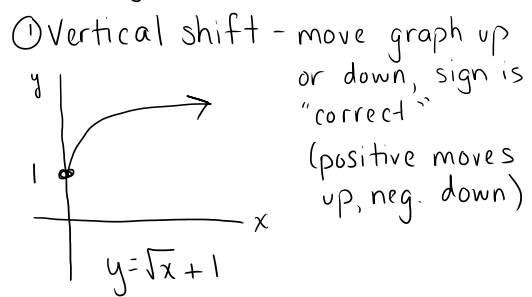 ① Vertical shift - move graph up
or down, sign is
"correct"
(positive moves
up, neg. down)
y
1
x
y=√x + 1